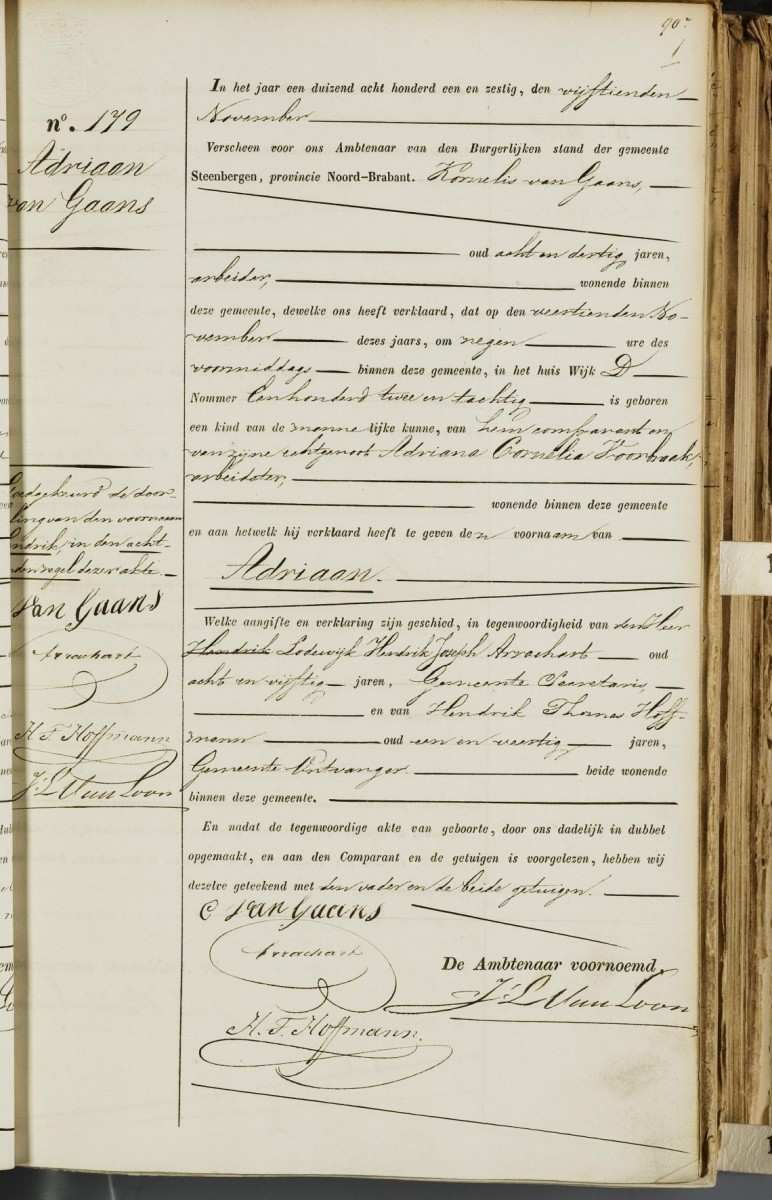 90
n°. 179
Adriaan
van Gaans
In het jaar een duizend acht honderd een en zestig, den vijftienden
November
Verscheen voor ons Ambtenaar van den Burgerlijken stand der gemeente
Steenbergen, provincie Noord-Brabant. Kornelis van Gaans,
oud acht en dertig jaren,
arbeider, wonende binnen
deze gemeente, dewelke ons heeft verklaard, dat op den veertienden No-
vember dezes jaars, om negen ure des
voormiddags binnen deze gemeente, in het huis Wijk D
Nommer Eenhonderd twee en tachtig is geboren
een kind van de mannelijke kunne, van hem comparant en
van zijne echtgenoot Adriana Cornelia Voorbraak,
arbeidster,
wonende binnen deze gemeente
en aan hetwelk hij verklaard heeft te geven den voornaam van
Adriaan.
Welke aangifte en verklaring zijn geschied, in tegenwoordigheid van den Heer
Hendrik Lodewijk Hendrik Joseph Arrachart oud
acht en vijftig jaren, Gemeente Secretaris
en van Hendrik Thomas Hoff-
mann oud een en veertig jaren,
Gemeente Ontvanger. beide wonende
binnen deze gemeente.
En nadat de tegenwoordige akte van geboorte, door ons dadelijk in dubbel
opgemaakt, en aan den Comparant en de getuigen is voorgelezen, hebben wij
dezelve geteekend met den vader en de beide getuigen.
C van Gaans
Arrachart
De Ambtenaar voornoemd
J. L. Van Loon
H. T. Hoffmann.
Goedgekeurd de door-
ling van den voornaam
Hendrik, in den acht-
den regel dezer akte.
van Gaans
Arrachart
H. T. Hoffmann
J. L. Van Loon